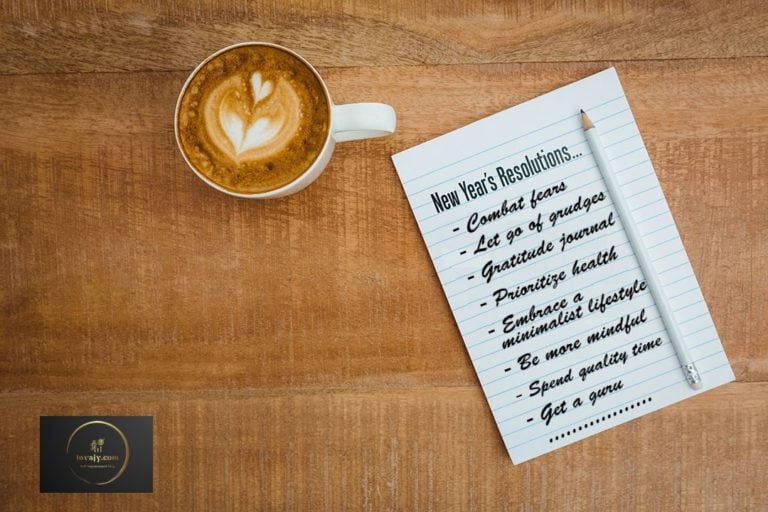 New Year's Resolutions...
- Combat fears
- Let go of grudges
- Gratitude journal
- Prioritize health
- Embrace a
minimalist lifestyle
- Be more mindful
- Spend quality time
- Get a guru
..................
lovajy.com